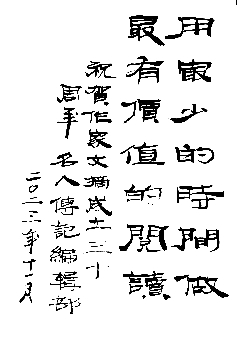 用最少的時間做
最有價值的閱讀
祝賀作家文摘成立三十
周年 名人傳記編輯部
二〇二三年十一月